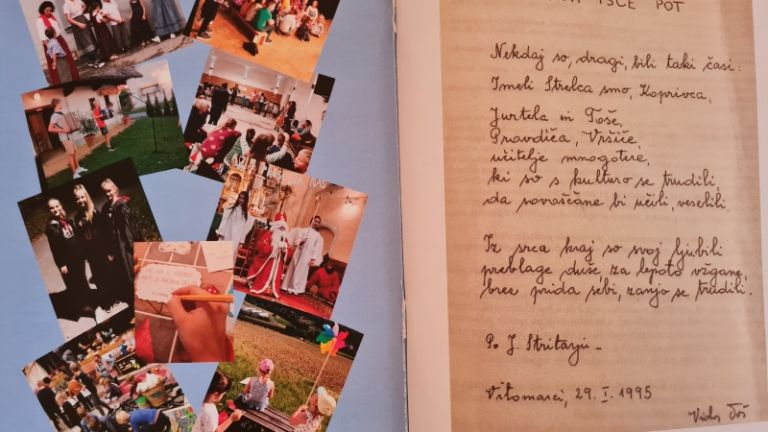 IŠČE POT
Nekdaj so, dragi, bili taki časi:
Imeli Strelca smo, Koprivca,
Jurtela in Toše,
Pravdiča, Vršiče,
učitelje mnogotere,
ki so s kulturo se trudili,
da sovaščane bi učili, veselili.
Iz srca kraj so svoj ljubili
preblage duše, za lepoto vžgane,
brez prida sebi, zanjo se trudili.
Po J. Stritarju -
Vitomarci, 29. I. 1995